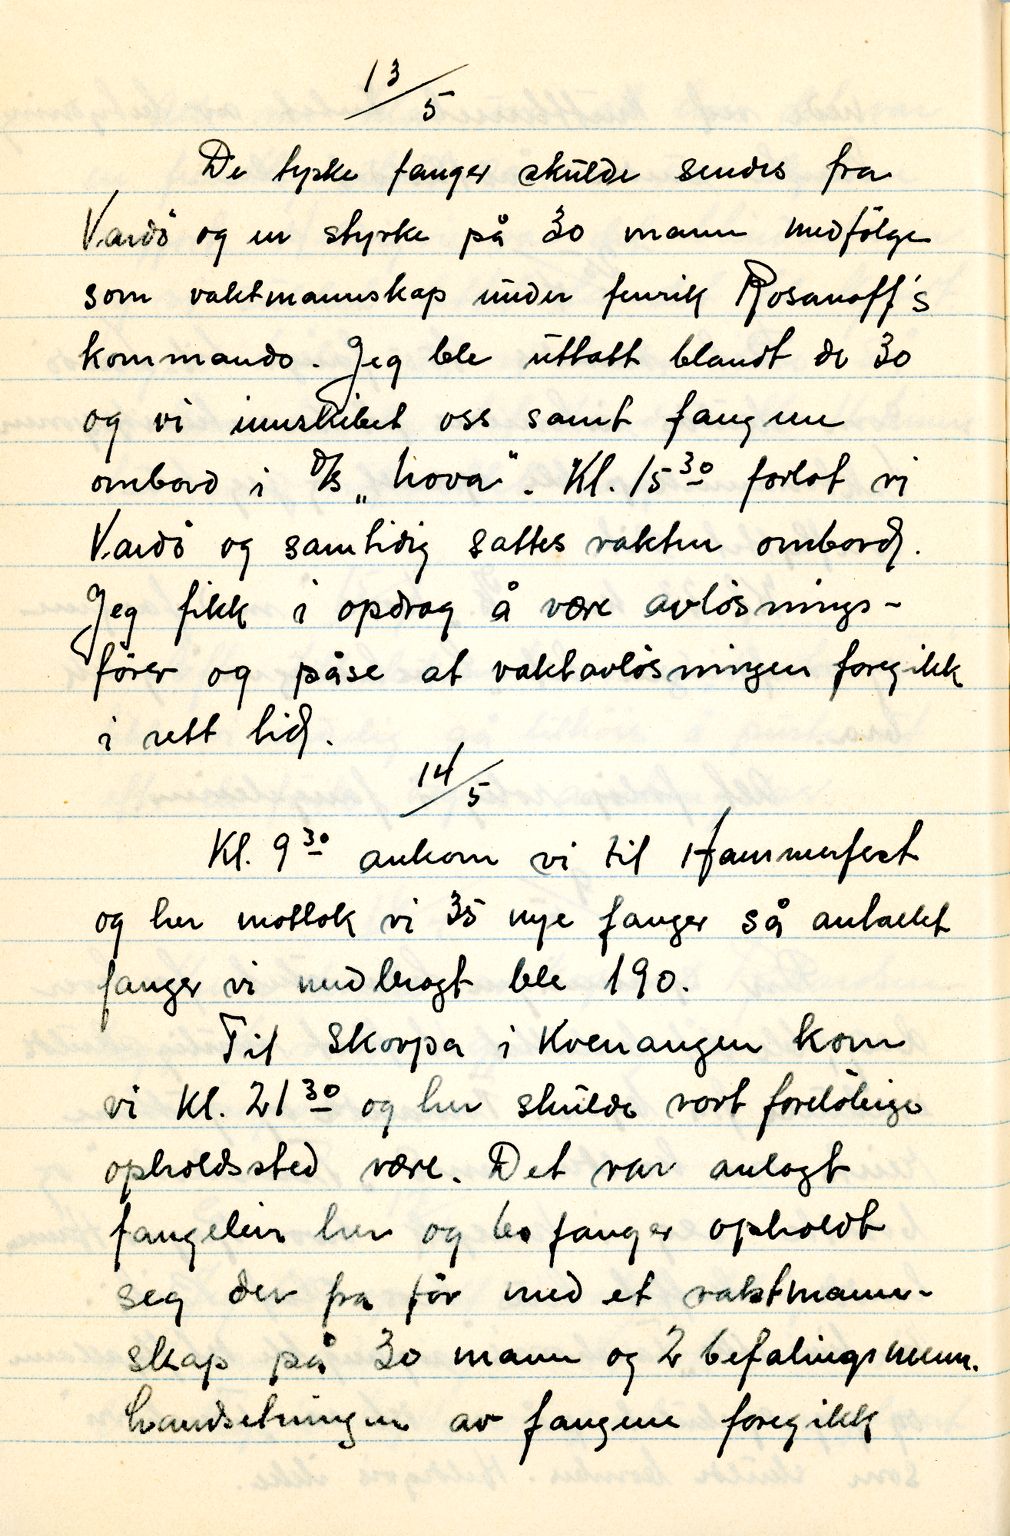 13/5
De tyske fanger skulde sendes fra
Vardö og en styrke på 30 mann medfölge
som vaktmannskap under fenrik Rosanoff's
kommando. Jeg ble uttatt blandt de 30
og vi innskibet oss samt fangene
ombord i d/s „Nova". Kl. 15 30 forlot vi
Vardö og samtidig sattes vakten ombord.
Jeg fikk i opdrag å være avlösnings-
förer og påse at vaktavlösningen foregikk
i rett tid.
14/5
Kl. 9 30 ankom vi til Hammerfest
og her mottok vi 35 nye fanger så antallet
fanger vi medbragt ble 190.
Til Skorpa i Kvenangen kom
vi kl. 21 30 og her skulde vort forelöbige
opholdssted være. Det var anlagt
fangeleir her og fanger opholdt
seg der fra för med et vaktmann-
skap på 30 mann og 2 befalingsmenn.
Landsetningen av fangene foregikk